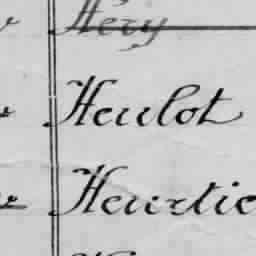 Héry
Heulot
Heurtie